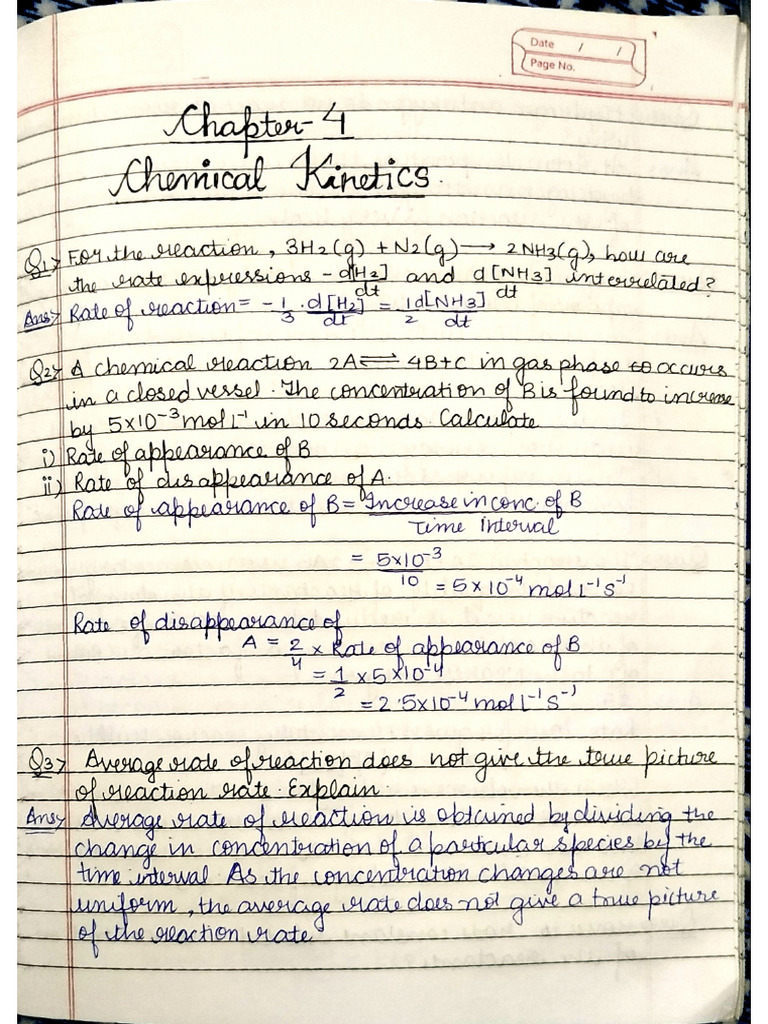 Date / /
Page No.
Chapter-4
Chemical Kinetics.
Q1> For the reaction, 3H2(g) + N2(g) → 2NH3(g), how are
the rate expressions -d[H2]/dt and d[NH3]/dt interrelated?
Ans> Rate of reaction = -1/3 . d[H2]/dt = 1/2 d[NH3]/dt
Q2> A chemical reaction 2A ⇌ 4B+C in gas phase to occurs
in a closed vessel. The concentration of B is found to increase
by 5×10⁻³ mol L⁻¹ in 10 seconds. Calculate
i) Rate of appearance of B
ii) Rate of disappearance of A.
Rate of appearance of B = Increase in conc. of B
Time interval
= 5×10⁻³
10 = 5×10⁻⁴ mol L⁻¹ s⁻¹
Rate of disappearance of
A = 2/4 × Rate of appearance of B
= 1/2 × 5×10⁻⁴
= 2.5×10⁻⁴ mol L⁻¹ s⁻¹
Q3> Average rate of reaction does not give the true picture
of reaction rate. Explain.
Ans> Average rate of reaction is obtained by dividing the
change in concentration of a particular species by the
time interval. As the concentration changes are not
uniform, the average rate does not give a true picture
of the reaction rate